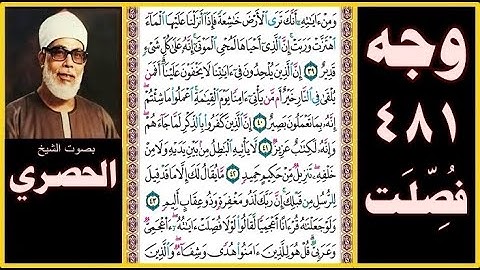 وجه
٤٨١
فُصِّلَت
بصوت الشيخ
الحصري
وَمِنْ ءَايَٰتِهِۦٓ أَنَّكَ تَرَى ٱلْأَرْضَ خَٰشِعَةً فَإِذَآ أَنزَلْنَا عَلَيْهَا ٱلْمَآءَ
ٱهْتَزَّتْ وَرَبَتْ إِنَّ ٱلَّذِىٓ أَحْيَاهَا لَمُحْىِ ٱلْمَوْتَىٰٓ إِنَّهُۥ عَلَىٰ كُلِّ شَىْءٍ
قَدِيرٌ ٣٩ إِنَّ ٱلَّذِينَ يُلْحِدُونَ فِىٓ ءَايَٰتِنَا لَا يَخْفَوْنَ عَلَيْنَآ أَفَمَن
يُلْقَىٰ فِى ٱلنَّارِ خَيْرٌ أَم مَّن يَأْتِىٓ ءَامِنًا يَوْمَ ٱلْقِيَٰمَةِ ٱعْمَلُوا۟ مَا شِئْتُمْ
إِنَّهُۥ بِمَا تَعْمَلُونَ بَصِيرٌ ٤٠ إِنَّ ٱلَّذِينَ كَفَرُوا۟ بِٱلذِّكْرِ لَمَّا جَآءَهُمْ
وَإِنَّهُۥ لَكِتَٰبٌ عَزِيزٌ ٤١ لَّا يَأْتِيهِ ٱلْبَٰطِلُ مِنۢ بَيْنِ يَدَيْهِ وَلَا مِنْ
خَلْفِهِۦ تَنزِيلٌ مِّنْ حَكِيمٍ حَمِيدٍ ٤٢ مَّا يُقَالُ لَكَ إِلَّا مَا قَدْ قِيلَ
لِلرُّسُلِ مِن قَبْلِكَ إِنَّ رَبَّكَ لَذُو مَغْفِرَةٍ وَذُو عِقَابٍ أَلِيمٍ ٤٣
وَلَوْ جَعَلْنَٰهُ قُرْءَانًا أَعْجَمِيًّا لَّقَالُوا۟ لَوْلَا فُصِّلَتْ ءَايَٰتُهُۥٓ ءَا۬عْجَمِىٌّ
وَعَرَبِىٌّ قُلْ هُوَ لِلَّذِينَ ءَامَنُوا۟ هُدًى وَشِفَآءٌ وَٱلَّذِينَ